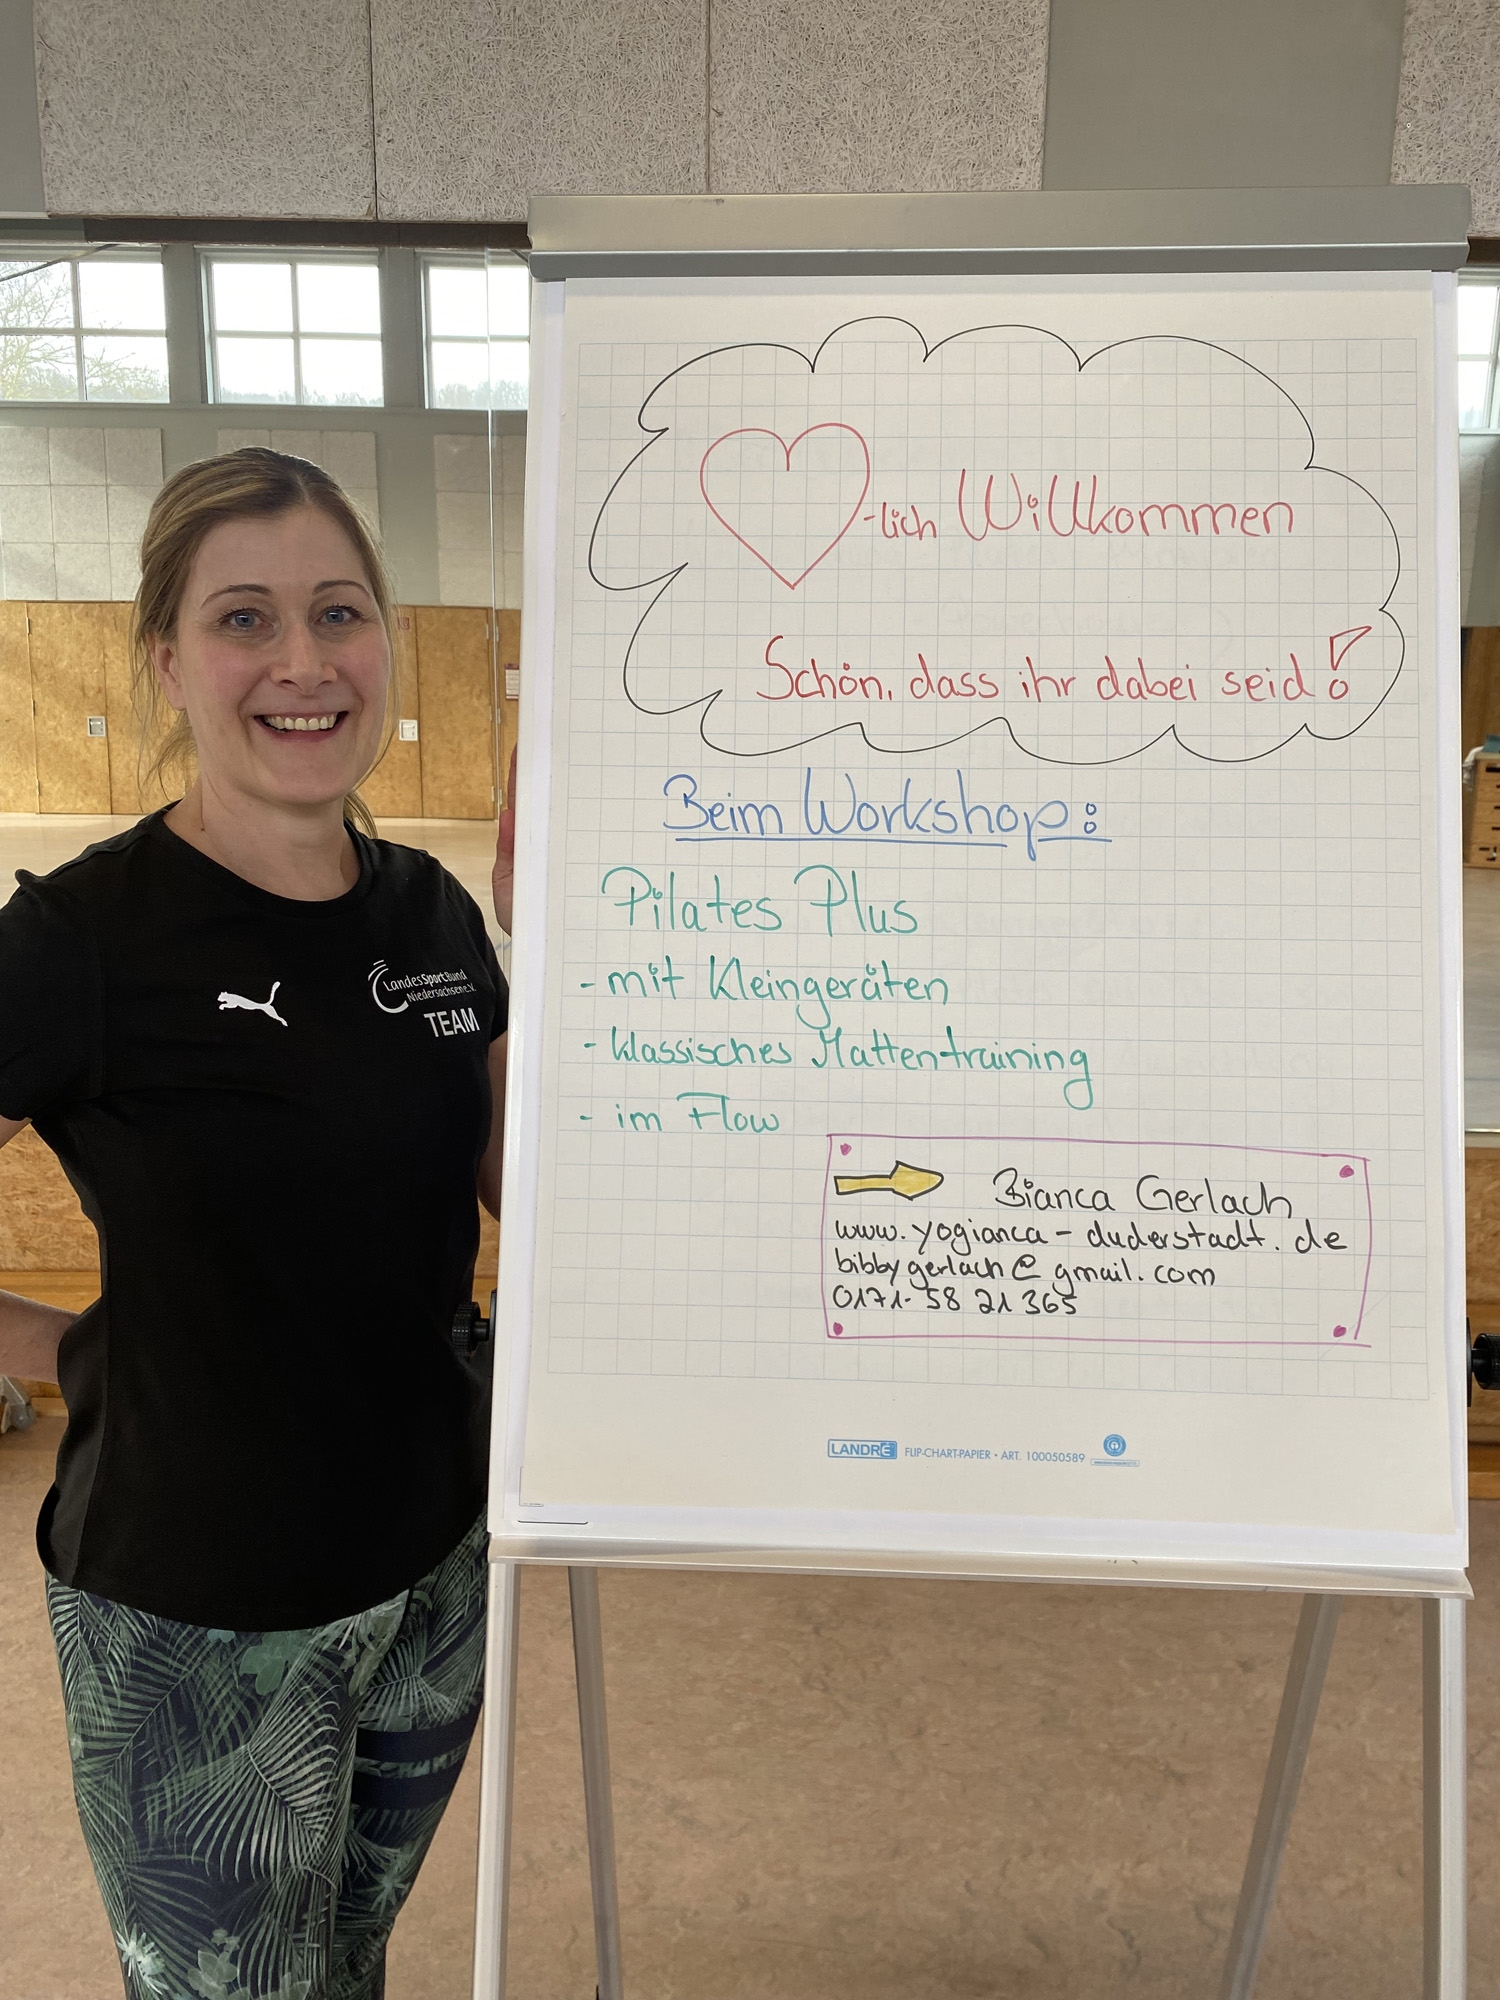 -lich Willkommen
Schön, dass ihr dabei seid!
Beim Workshop:
Pilates Plus
- mit Kleingeräten
- klassisches Mattentraining
- im Flow
Bianca Gerlach
www.yogianca-duderstadt.de
bibbygerlach@gmail.com
0171-58 21 365
LANDRÉ FLIP-CHART-PAPIER • ART. 100050589
LandesSportBund
Niedersachsen e.V.
TEAM